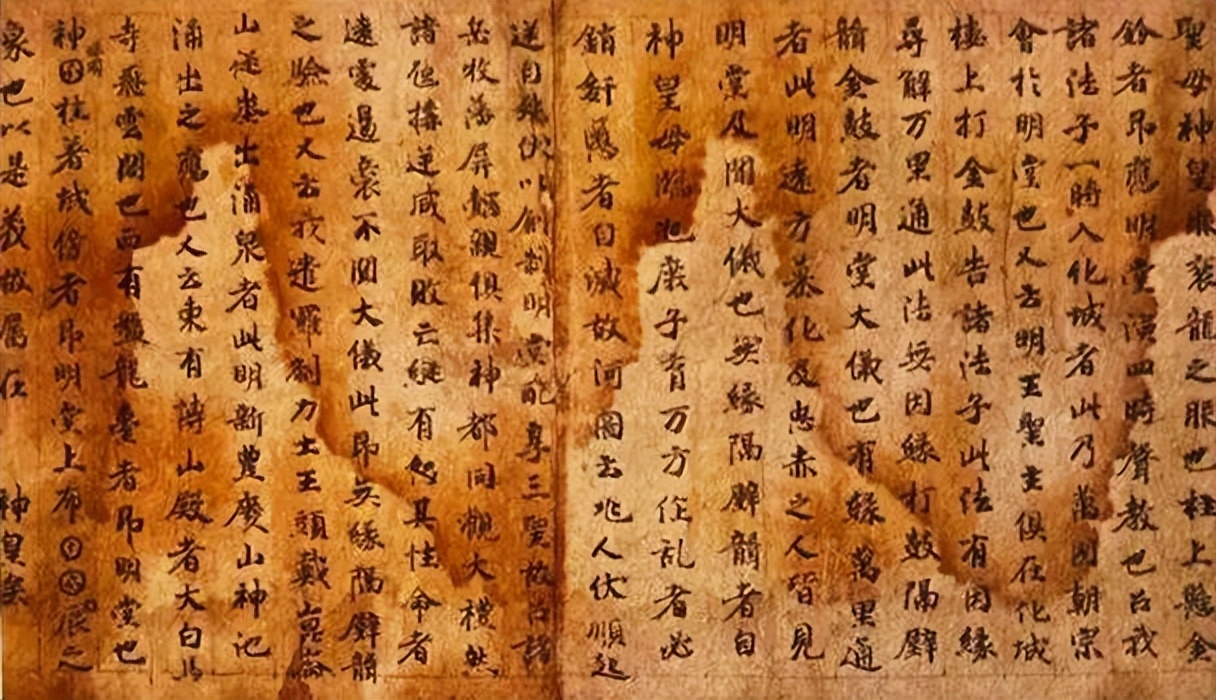 聖母神皇服袞龍之服也柱上懸金
鈴者即應明堂演四時聲教也召我
諸法子一時入化城者此乃萬國朝宗
會於明堂也又云明王聖主俱在化城
樓上打金鼓告諸法子此法有因緣
尋解万里通此法無因緣打鼓隔壁
聽金鼓者明堂大儀也有緣萬里通
者此明遠方慕化及忠赤之人皆見
明堂及聞大儀也無緣隔壁聽者自
神皇母臨 庶子育万方作乱者必
銷奸慝者自滅故河圖云兆人伏順起
逆自然伏以創制明堂配享三聖故召諸
岳牧藩屏懿親俱集神都同觀大禮然
諸虺構逆咸取敗亡縱有免其性命者
遠竄邊裔不聞大儀此即無緣隔壁聽
之驗也又云我遣羅刹力士王頭戴崑崙
山從 出涌泉者此明新豐慶山神池
涌出之應也又云東有博山殿者大白馬
寺飛雲閣也西有盤龍臺者即明堂也
神𡆠柱著城傍者即明堂上布𡆠 辰之
象也以是義故屬在 神皇矣